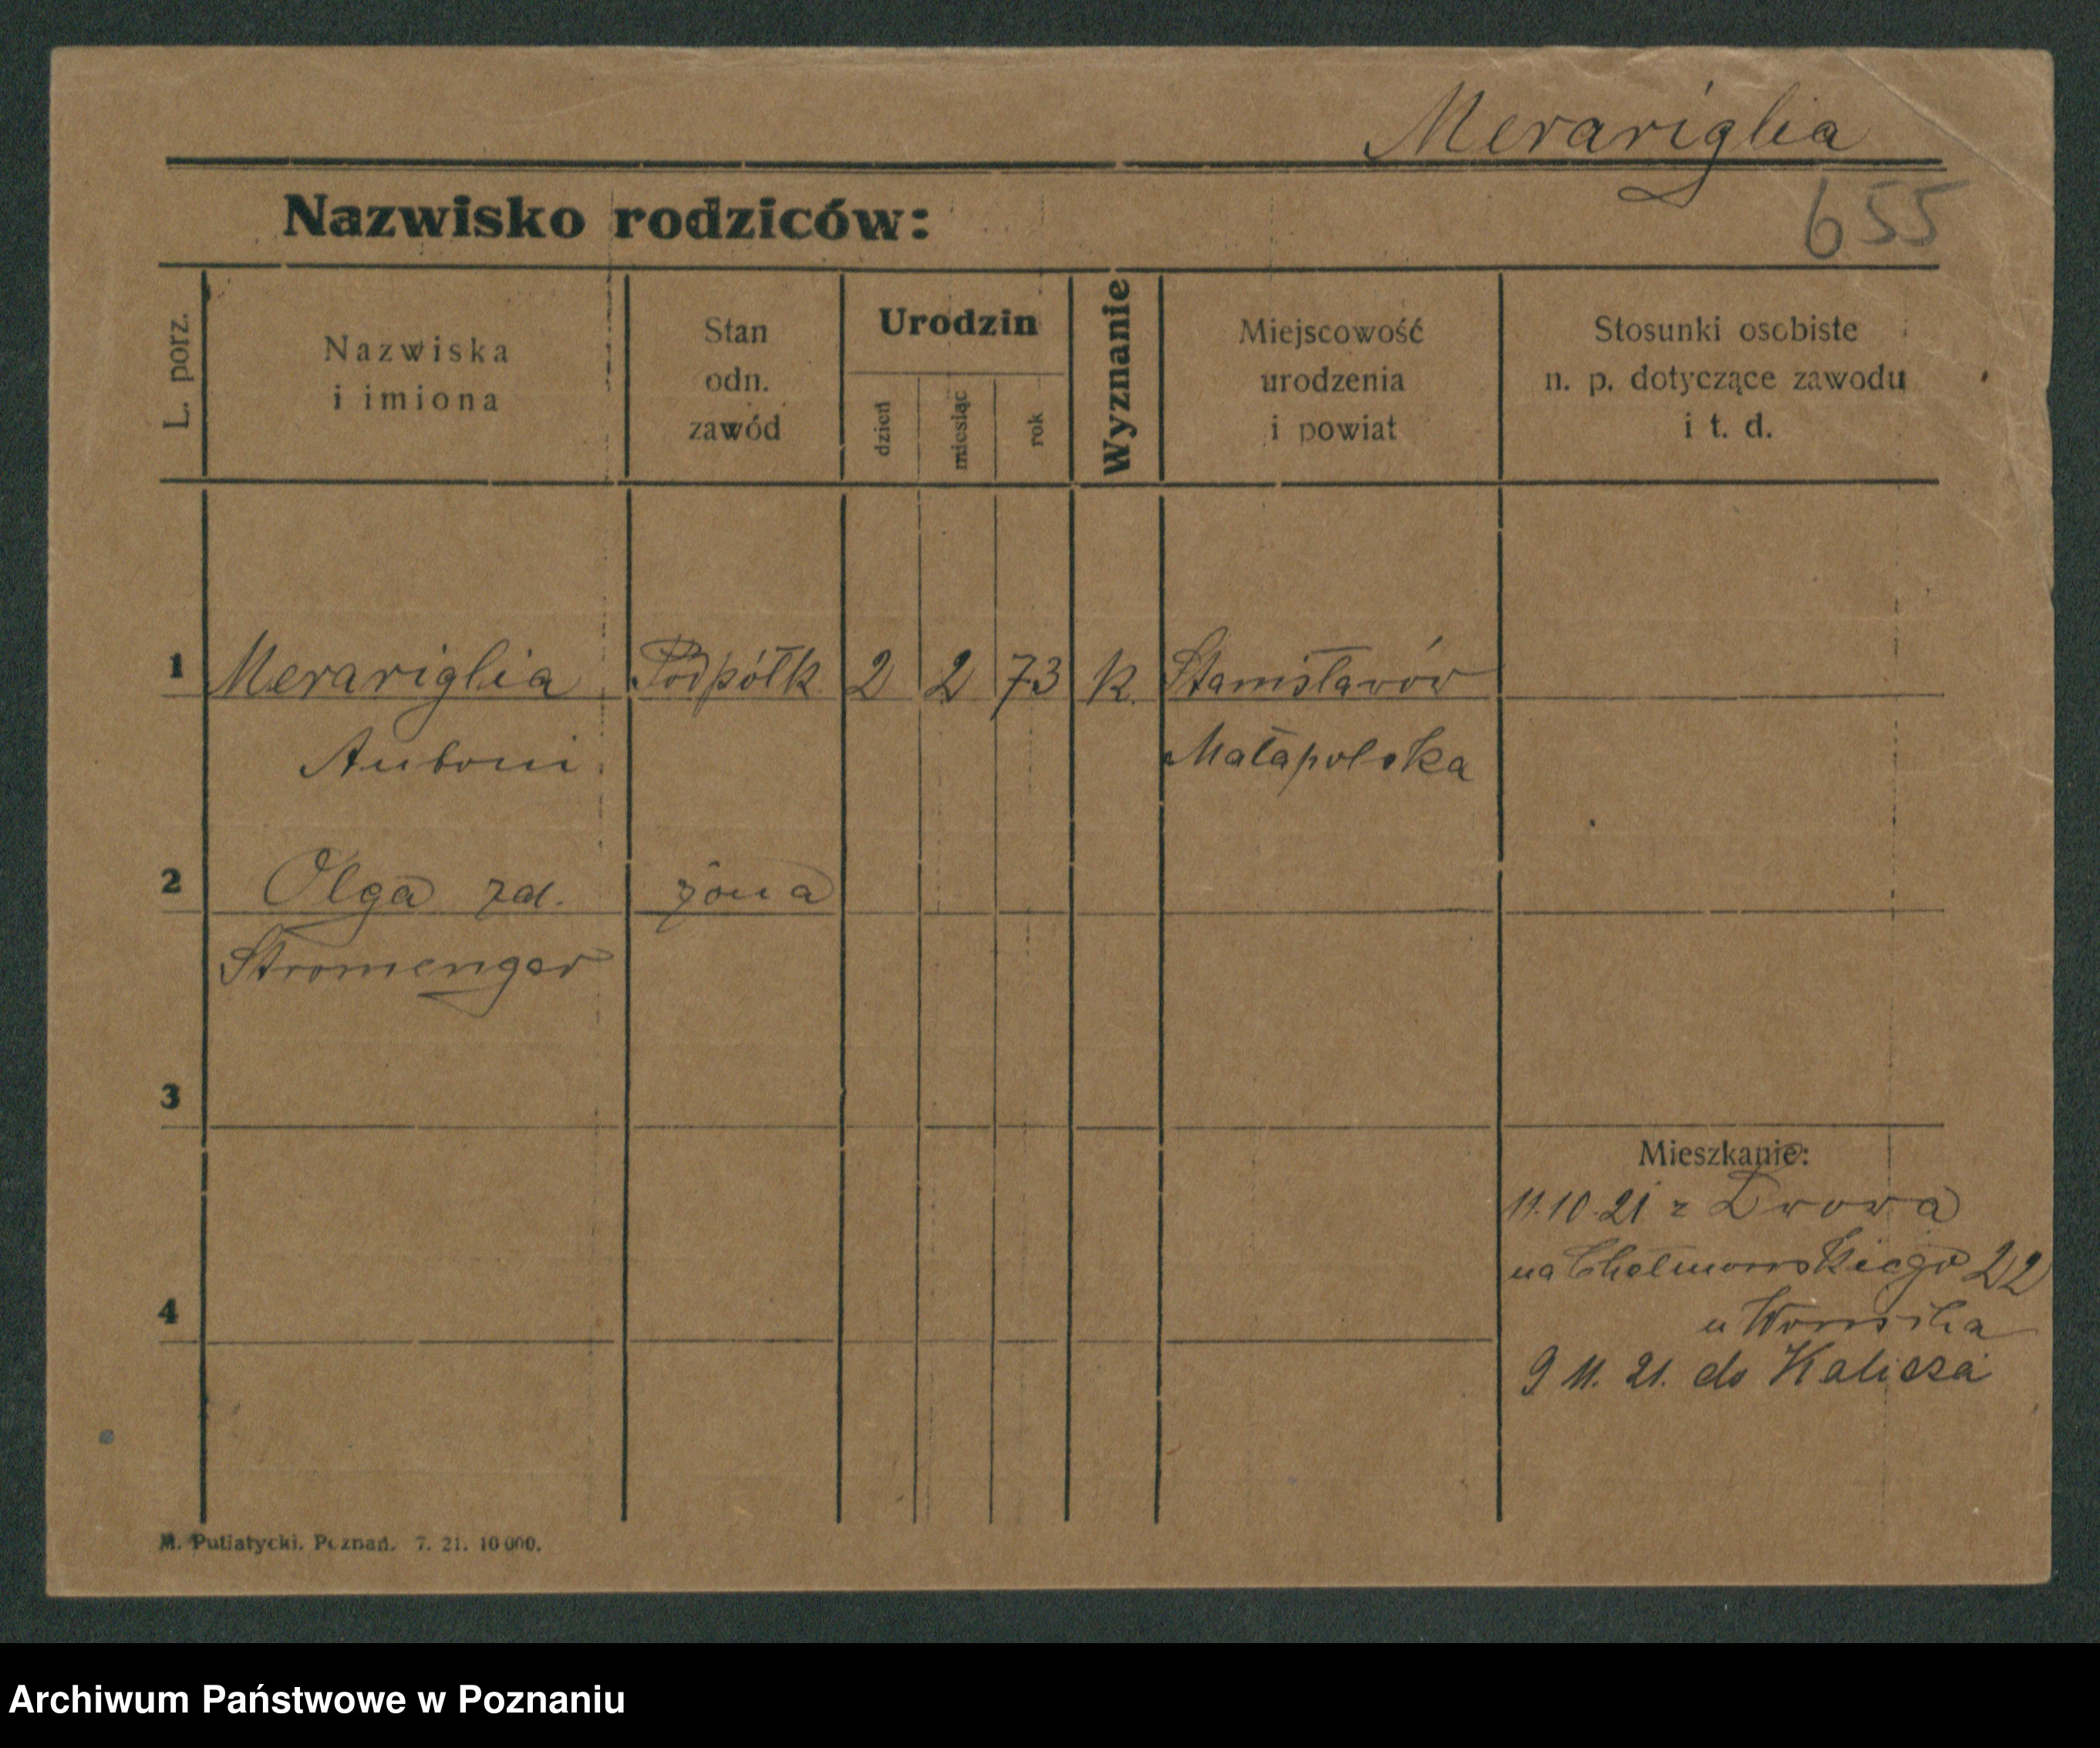 Merariglia
655
Nazwisko rodziców:
L. porz.
Nazwiska
i imiona
Stan
odn.
zawód
Urodzin
dzień
miesiąc
rok
Wyznanie
Miejscowość
urodzenia
i powiat
Stosunki osobiste
n. p. dotyczące zawodu
i t. d.
1 Merariglia Podpółk 2 2 73 k. Stanisławów
Antoni Małapolska
2 Olga zd. żona
Stromenger
3
Mieszkanie:
11.10.21 z Lwowa
na Chełmońskiego 22
u
4
9 11. 21. do Kalisza
M. Putiatycki. Poznań. 7. 21. 10 000.
Archiwum Państwowe w Poznaniu